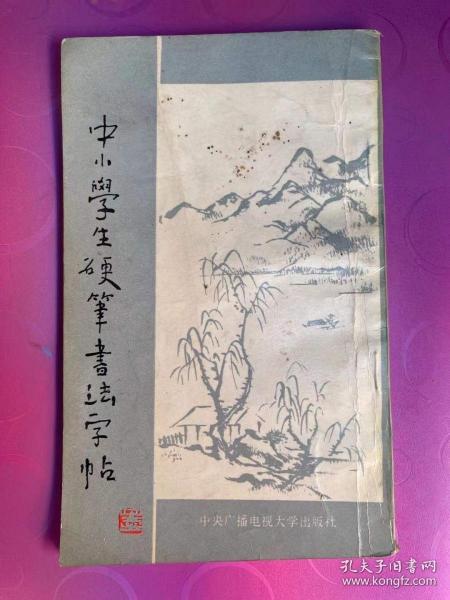 中小學生硬筆書法字帖
中央广播电视大学出版社
孔夫子旧书网
www.kongfz.com